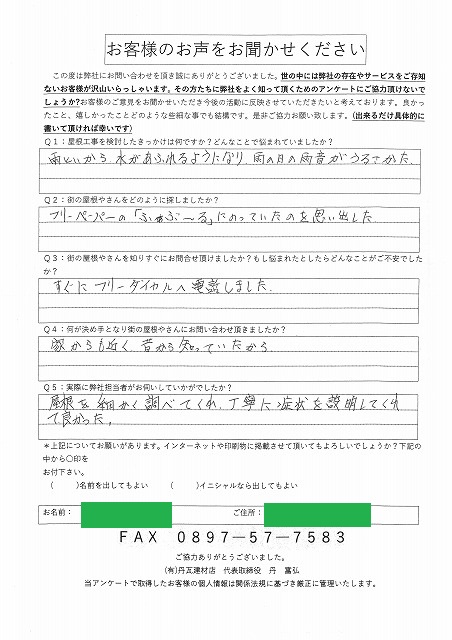 お客様のお声をお聞かせください
この度は弊社にお問い合わせを頂き誠にありがとうございました。世の中には弊社の存在やサービスをご存知
ないお客様が沢山いらっしゃいます。その方たちに弊社をよく知って頂くためのアンケートにご協力頂けないで
しょうか?お客様のご意見をお聞かせいただき今後の活動に反映させていただきたいと考えております。良かっ
たこと、嬉しかったことどのような些細な事でも結構です。是非ご協力お願い致します。(出来るだけ具体的に
書いて頂ければ幸いです)
Q1:屋根工事を検討したきっかけは何ですか?どんなことで悩まれていましたか?
雨といから水があふれるようになり、雨の日の雨音がうるさかた
Q2:街の屋根やさんをどのように探しましたか?
フリーペーパーの「ふぁぶ〜る」にのっていたのを思い出した
Q3:街の屋根やさんを知りすぐにお問合せ頂けましたか?もし悩まれたとしたらどんなことがご不安でした
か?
すぐにフリーダイヤルへ電話しました.
Q4:何が決め手となり街の屋根やさんにお問い合わせ頂きましたか?
家からも近く、昔から知っていたから
Q5:実際に弊社担当者がお伺いしていかがでしたか?
屋根を細かく調べてくれ、丁寧に症状を説明してくれ
て良かった。
*上記についてお願いがあります。インターネットや印刷物に掲載させて頂いてもよろしいでしょうか?下記の
中から〇印を
お付下さい。
( )名前を出してもよい ( )イニシャルなら出してもよい
お名前: ご住所:
FAX 0897-57-7583
ご協力ありがとうございました。
(有)丹瓦建材店 代表取締役 丹 富弘
当アンケートで取得したお客様の個人情報は関係法規に基づき厳正に管理いたします。